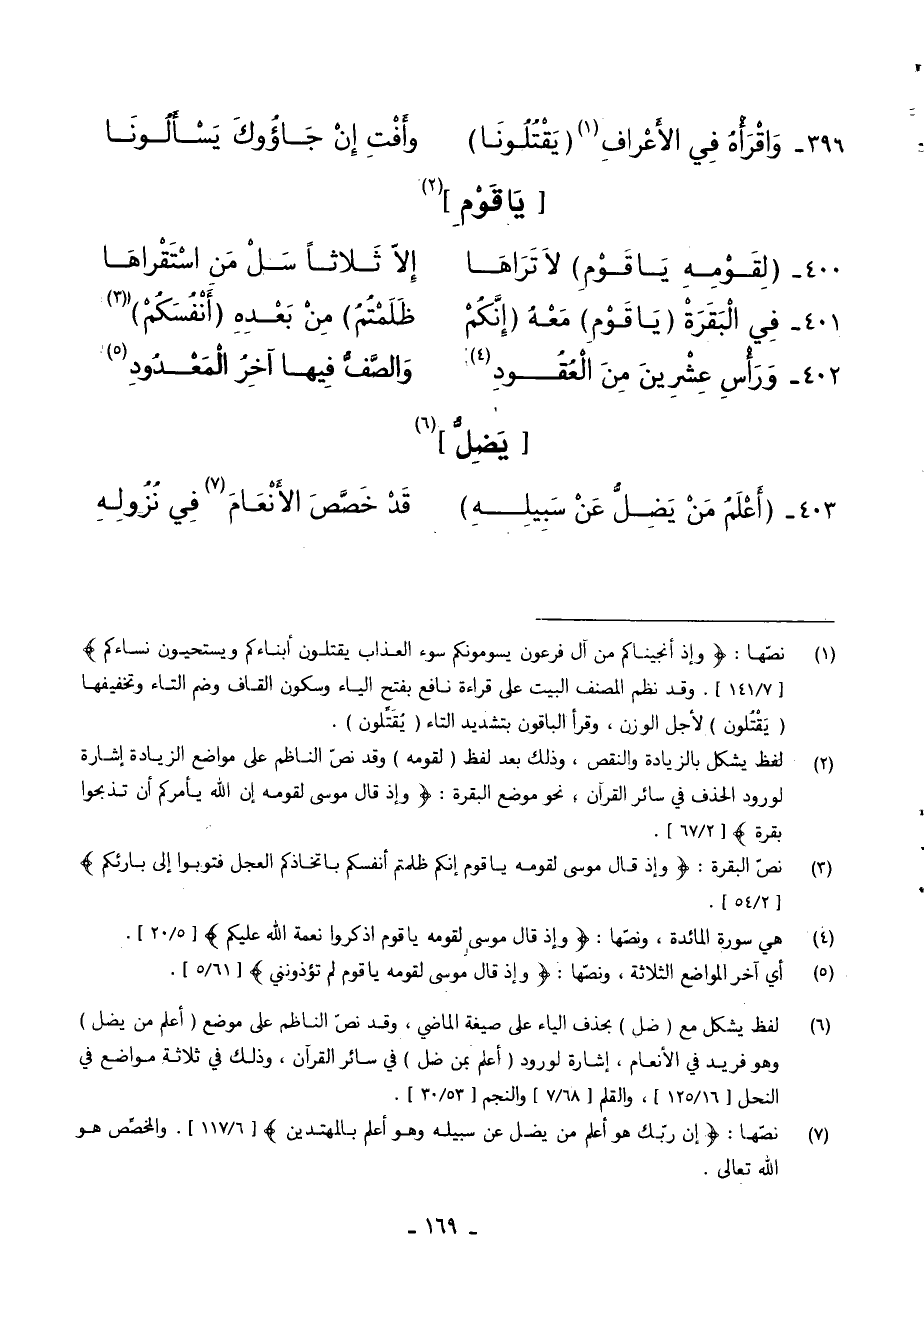 ٣٩٦ـ وَاقْرَأْهُ فِي الأَعْرافِ(١) (يَقْتُلُونَا) وأَفْتِ إِنْ جَـاؤُوكَ يَسْـأَلُـونَـا
[ يَاقَوْمِ ](٢)
٤٠٠ـ (لِقَـوْمِـهِ يَـا قَـوْمِ) لاَ تَرَاهَـا إِلاّ ثَـلاثـاً سَـلْ مَنِ اسْتَقْراهَـا
٤٠١ـ فِي الْبَقَرَةْ (يَـا قَوْمِ) مَعْـهُ (إِنَّكُمْ ظَلَمْتُمُ) مِنْ بَعْـدِهِ (أَنْفُسَكُمْ)(٣)
٤٠٢ـ وَرَأْسِ عِشْرِينَ مِنَ الْعُقُـودِ(٤) وَالصَّفُّ فِيهـا آخِرُ الْمَعْـدُودِ(٥)
[ يَضِلُّ ](٦)
٤٠٣ـ (أَعْلَمُ مَنْ يَضِـلُّ عَنْ سَبِيلِـهِ) قَدْ خَصَّصَ الأَنْعَـامَ(٧) فِي نُزُولِـهِ
(١) نصّهـا : ﴿ وإذ أنجيناكم من آل فرعون يسومونكم سوء العـذاب يقتلـون أبنـاءكم ويستحيـون نسـاءكم ﴾
[ ١٤١/٧ ] . وقـد نظم المصنف البيت على قراءة نـافع بفتح اليـاء وسكون القـاف وضم التـاء وتخفيفهـا
( يَقْتُلون ) لأجل الوزن ، وقرأ الباقون بتشديد التاء ( يُقَتِّلون ) .
(٢) لفظ يشكل بالزيادة والنقص ، وذلك بعد لفظ ( لقومه ) وقد نصّ النـاظم على مواضع الزيـادة إشـارة
لورود الحذف في سائر القرآن ؛ نحو موضع البقرة : ﴿ وإذ قال موسى لقومـه إن الله يـأمركم أن تـذبحوا
بقرة ﴾ [ ٦٧/٢ ] .
(٣) نصّ البقرة : ﴿ وإذ قـال موسى لقومـه يـاقوم إنكم ظلمتم أنفسكم بـاتخـاذكم العجل فتوبـوا إلى بـارئكم ﴾
[ ٥٤/٢ ] .
(٤) هي سورة المائدة ، ونصّها : ﴿ وإذ قال موسى لقومه ياقوم اذكروا نعمة الله عليكم ﴾ [ ٢٠/٥ ] .
(٥) أي آخر المواضع الثلاثة ، ونصّها : ﴿ وإذ قال موسى لقومه ياقوم لم تؤذونني ﴾ [ ٥/٦١ ] .
(٦) لفظ يشكل مع ( ضل ) بحذف الياء على صيغة الماضي ، وقـد نصّ النـاظم على موضع ( أعلم من يضل )
وهو فريـد في الأنعـام ، إشـارة لورود ( أعلم بمن ضل ) في سـائر القرآن ، وذلـك في ثلاثـة مـواضع في
النحل [ ١٢٥/١٦ ] ، والقلم [ ٧/٦٨ ] والنجم [ ٣٠/٥٣ ] .
(٧) نصّهـا : ﴿ إن ربّـك هو أعلم من يضـل عن سبيلـه وهـو أعلم بـالمهتـدين ﴾ [ ١١٧/٦ ] . والمخصِّص هـو
الله تعالى .
ـ ١٦٩ ـ